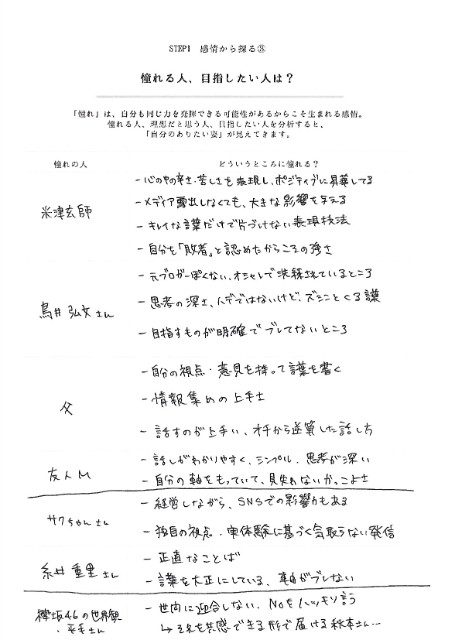 STEP1 感情から探る⑧
憧れる人、目指したい人は？
「憧れ」は、自分も同じ力を発揮できる可能性があるからこそ生まれる感情。
憧れる人、理想だと思う人、目指したい人を分析すると、
「自分のありたい姿」が見えてきます。
憧れの人 どういうところに憧れる？
- 心の中の辛さ・苦しさを表現し、ポジティブに昇華してる
米津玄師 - メディア露出しなくても、大きな影響を与える
- キレイな言葉だけで片づけない表現技法
- 自分を「敗者」と認めたからこその強さ
- 元ブロガーぽくない、オシャレで洗練されているところ
鳥井弘文さん - 思考の深さ、ではないけど、ズシンとくる言葉
- 目指すものが明確でブレてないところ
父 - 自分の視点・意見を持って言葉を書く
- 情報集めの上手さ
- 話すのが上手い、オチから逆算した話し方
友人M - 話しがわかりやすく、シンプル、思考が深い
- 自分の軸をもっていて、見失わないかっこよさ
サクちゃんさん - 経営しながら、SNSでの影響力もある
- 独自の視点・実体験に基づく気取らない発信
糸井重里さん - 正直なことば
- 言葉を大正にしている、軸がブレない
欅坂46の世界観 - 世間に迎合しない、Noをハッキリ言う
・平手さん ↳ それを共感できる形で届ける秋本さん…